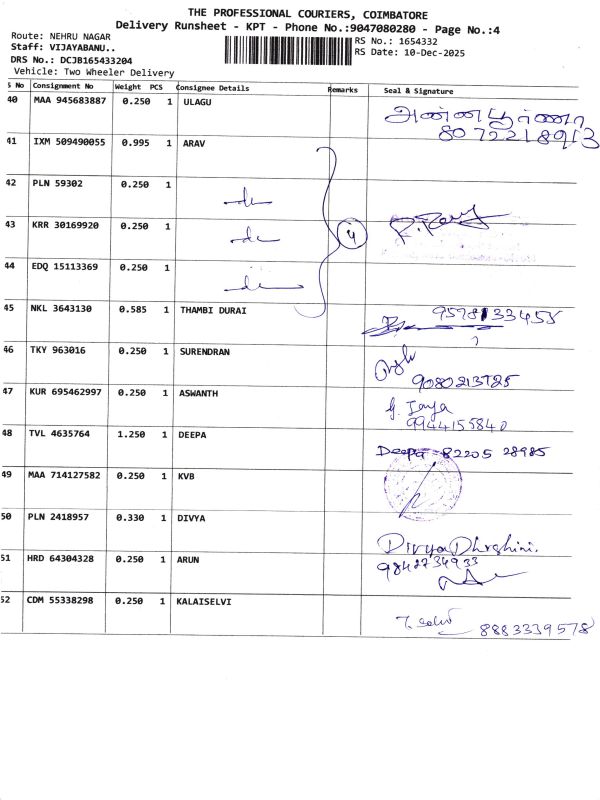 THE PROFESSIONAL COURIERS, COIMBATORE
Delivery Runsheet - KPT - Phone No.:9047080280 - Page No.:4
Route: NEHRU NAGAR
Staff: VIJAYABANU..
DRS No.: DCJB165433204
Vehicle: Two Wheeler Delivery
RS No.: 1654332
RS Date: 10-Dec-2025
S No Consignment No Weight PCS Consignee Details Remarks Seal & Signature
40 MAA 945683887 0.250 1 ULAGU அன்னபூரணி
8072218913
41 IXM 509490055 0.995 1 ARAV
42 PLN 59302 0.250 1
43 KRR 30169920 0.250 1 4
44 EDQ 15113369 0.250 1
45 NKL 3643130 0.585 1 THAMBI DURAI 9578133455
46 TKY 963016 0.250 1 SURENDRAN
9080213725
47 KUR 695462997 0.250 1 ASWANTH
9944155840
48 TVL 4635764 1.250 1 DEEPA Deepa 82205 28985
49 MAA 714127582 0.250 1 KVB
50 PLN 2418957 0.330 1 DIVYA Divya Dharshini.
51 HRD 64304328 0.250 1 ARUN 9842734933
52 CDM 55338298 0.250 1 KALAISELVI T. Selvi 8883339578